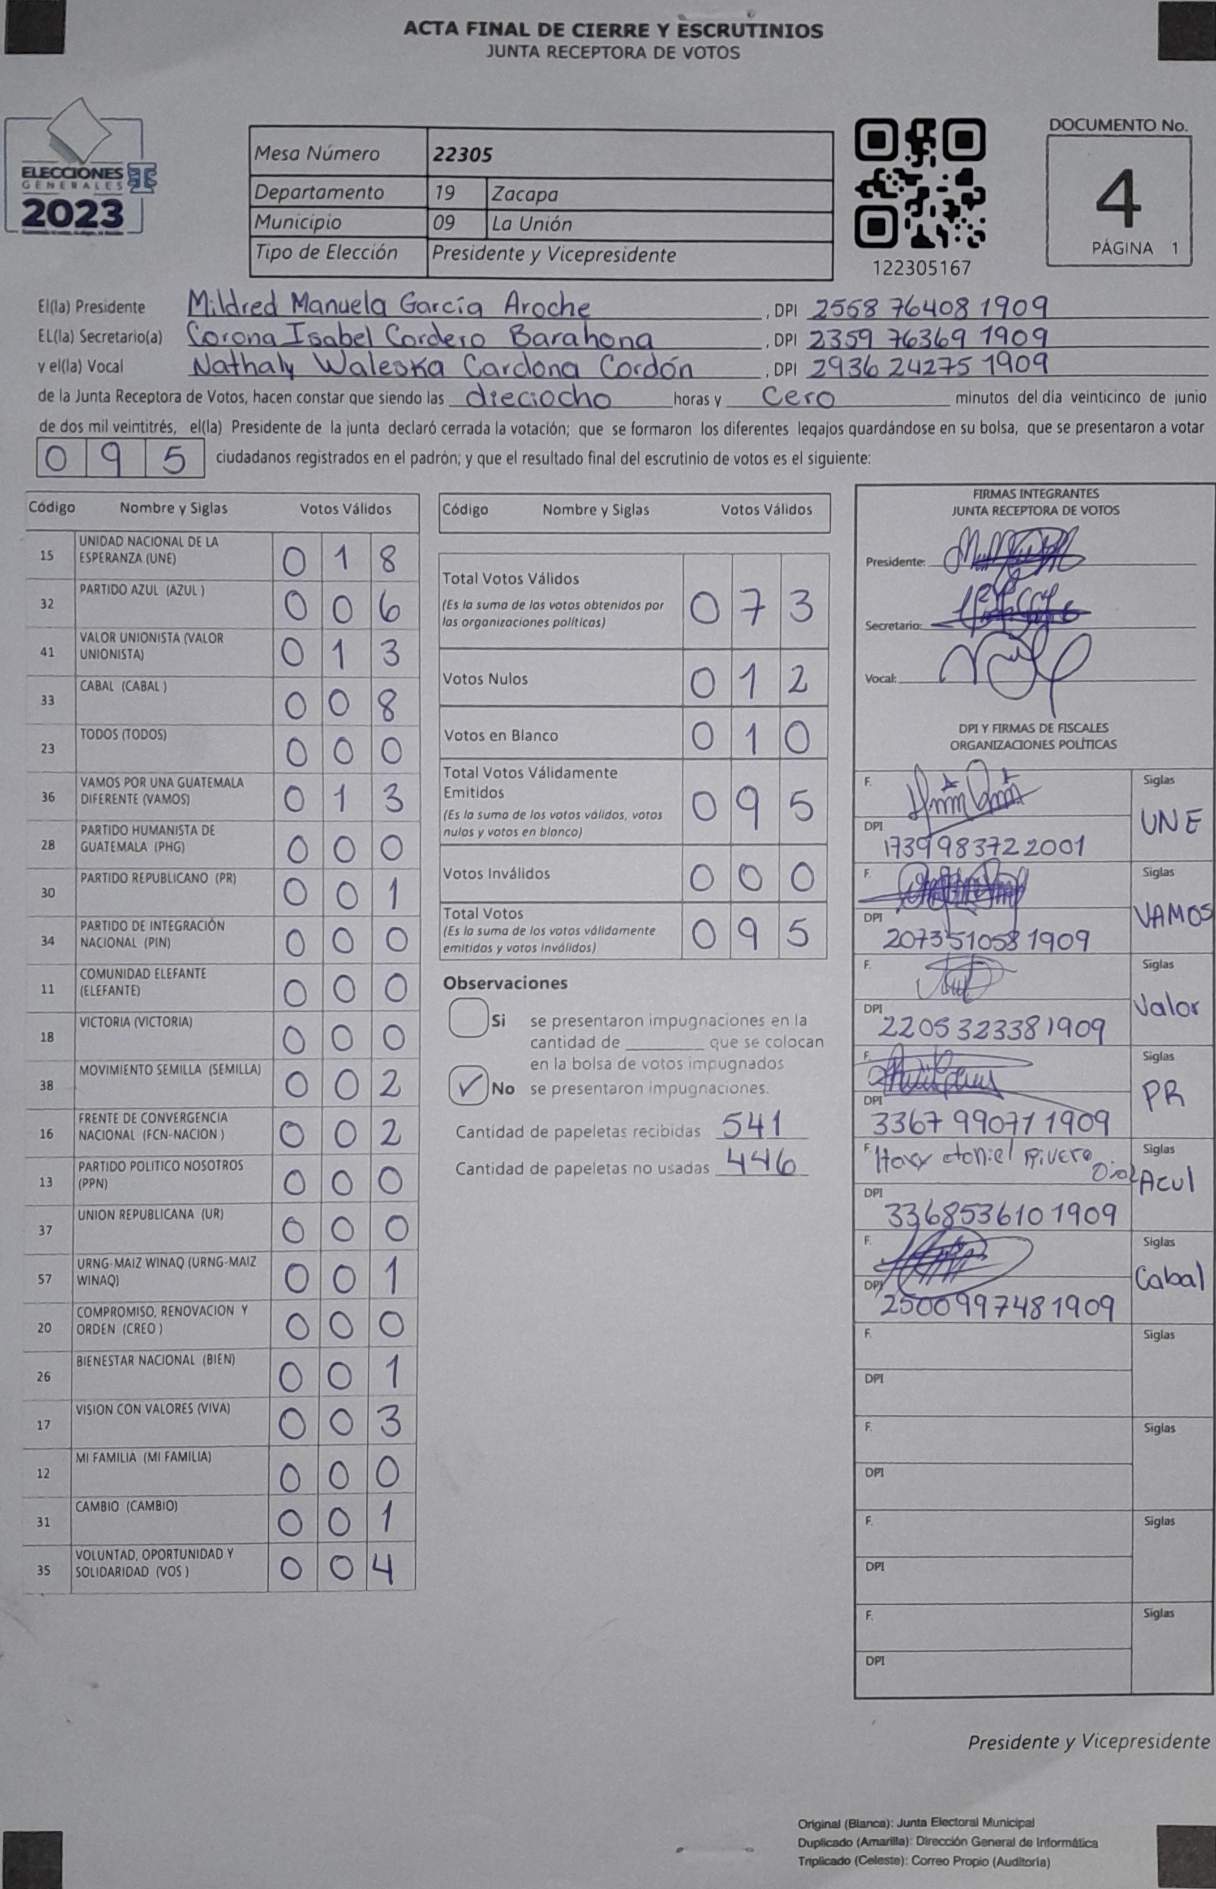 ACTA FINAL DE CIERRE Y ESCRUTINIOS
JUNTA RECEPTORA DE VOTOS
ELECCIONES
GENERALES
2023
Mesa Número 22305
Departamento 19 Zacapa
Municipio 09 La Unión
Tipo de Elección Presidente y Vicepresidente
122305167
DOCUMENTO No.
4
PÁGINA 1
El(la) Presidente Mildred Manuela García Aroche, DPI 2568 76408 1909
EL(la) Secretario(a) Corona Isabel Cordero Barahona, DPI 2359 76369 1909
y el(la) Vocal Nathaly Waleska Cardona Cordón, DPI 2936 24275 1909
de la Junta Receptora de Votos, hacen constar que siendo las dieciocho horas y Cero minutos del día veinticinco de junio
de dos mil veintitrés, el(la) Presidente de la junta declaró cerrada la votación; que se formaron los diferentes legajos guardándose en su bolsa, que se presentaron a votar
0 9 5 ciudadanos registrados en el padrón; y que el resultado final del escrutinio de votos es el siguiente:
Código Nombre y Siglas Votos Válidos
15 UNIDAD NACIONAL DE LA ESPERANZA (UNE) 0 1 8
32 PARTIDO AZUL (AZUL ) 0 0 6
41 VALOR UNIONISTA (VALOR UNIONISTA) 0 1 3
33 CABAL (CABAL ) 0 0 8
23 TODOS (TODOS) 0 0 0
36 VAMOS POR UNA GUATEMALA DIFERENTE (VAMOS) 0 1 3
28 PARTIDO HUMANISTA DE GUATEMALA (PHG) 0 0 0
30 PARTIDO REPUBLICANO (PR) 0 0 1
34 PARTIDO DE INTEGRACIÓN NACIONAL (PIN) 0 0 0
11 COMUNIDAD ELEFANTE (ELEFANTE) 0 0 0
18 VICTORIA (VICTORIA) 0 0 0
38 MOVIMIENTO SEMILLA (SEMILLA) 0 0 2
16 FRENTE DE CONVERGENCIA NACIONAL (FCN-NACION ) 0 0 2
13 PARTIDO POLITICO NOSOTROS (PPN) 0 0 0
37 UNION REPUBLICANA (UR) 0 0 0
57 URNG-MAIZ WINAQ (URNG-MAIZ WINAQ) 0 0 1
20 COMPROMISO, RENOVACION Y ORDEN (CREO ) 0 0 0
26 BIENESTAR NACIONAL (BIEN) 0 0 1
17 VISION CON VALORES (VIVA) 0 0 3
12 MI FAMILIA (MI FAMILIA) 0 0 0
31 CAMBIO (CAMBIO) 0 0 1
35 VOLUNTAD, OPORTUNIDAD Y SOLIDARIDAD (VOS ) 0 0 4
Código Nombre y Siglas Votos Válidos
Total Votos Válidos 0 7 3
(Es la suma de los votos obtenidos por
las organizaciones políticas)
Votos Nulos 0 1 2
Votos en Blanco 0 1 0
Total Votos Válidamente
Emitidos 0 9 5
(Es la suma de los votos válidos, votos
nulos y votos en blanco)
Votos Inválidos 0 0 0
Total Votos 0 9 5
(Es la suma de los votos válidamente
emitidos y votos inválidos)
Observaciones
Si se presentaron impugnaciones en la
cantidad de ________ que se colocan
en la bolsa de votos impugnados
✓ No se presentaron impugnaciones.
Cantidad de papeletas recibidas 541
Cantidad de papeletas no usadas 446
FIRMAS INTEGRANTES
JUNTA RECEPTORA DE VOTOS
Presidente:
Secretario:
Vocal:
DPI Y FIRMAS DE FISCALES
ORGANIZACIONES POLÍTICAS
F. Siglas
UNE
DPI 1739 98372 2001
F. Siglas
VAMOS
DPI 2073 51058 1909
F. Siglas
Valor
DPI 2205 32338 1909
F. Siglas
PR
DPI 3367 99071 1909
F. Siglas
Acul
DPI 3368536101909
F. Siglas
Cabal
DPI 2500997481909
F. Siglas
DPI
F. Siglas
DPI
F. Siglas
DPI
F. Siglas
DPI
Presidente y Vicepresidente
Original (Blanca): Junta Electoral Municipal
Duplicado (Amarilla): Dirección General de Informática
Triplicado (Celeste): Correo Propio (Auditoría)